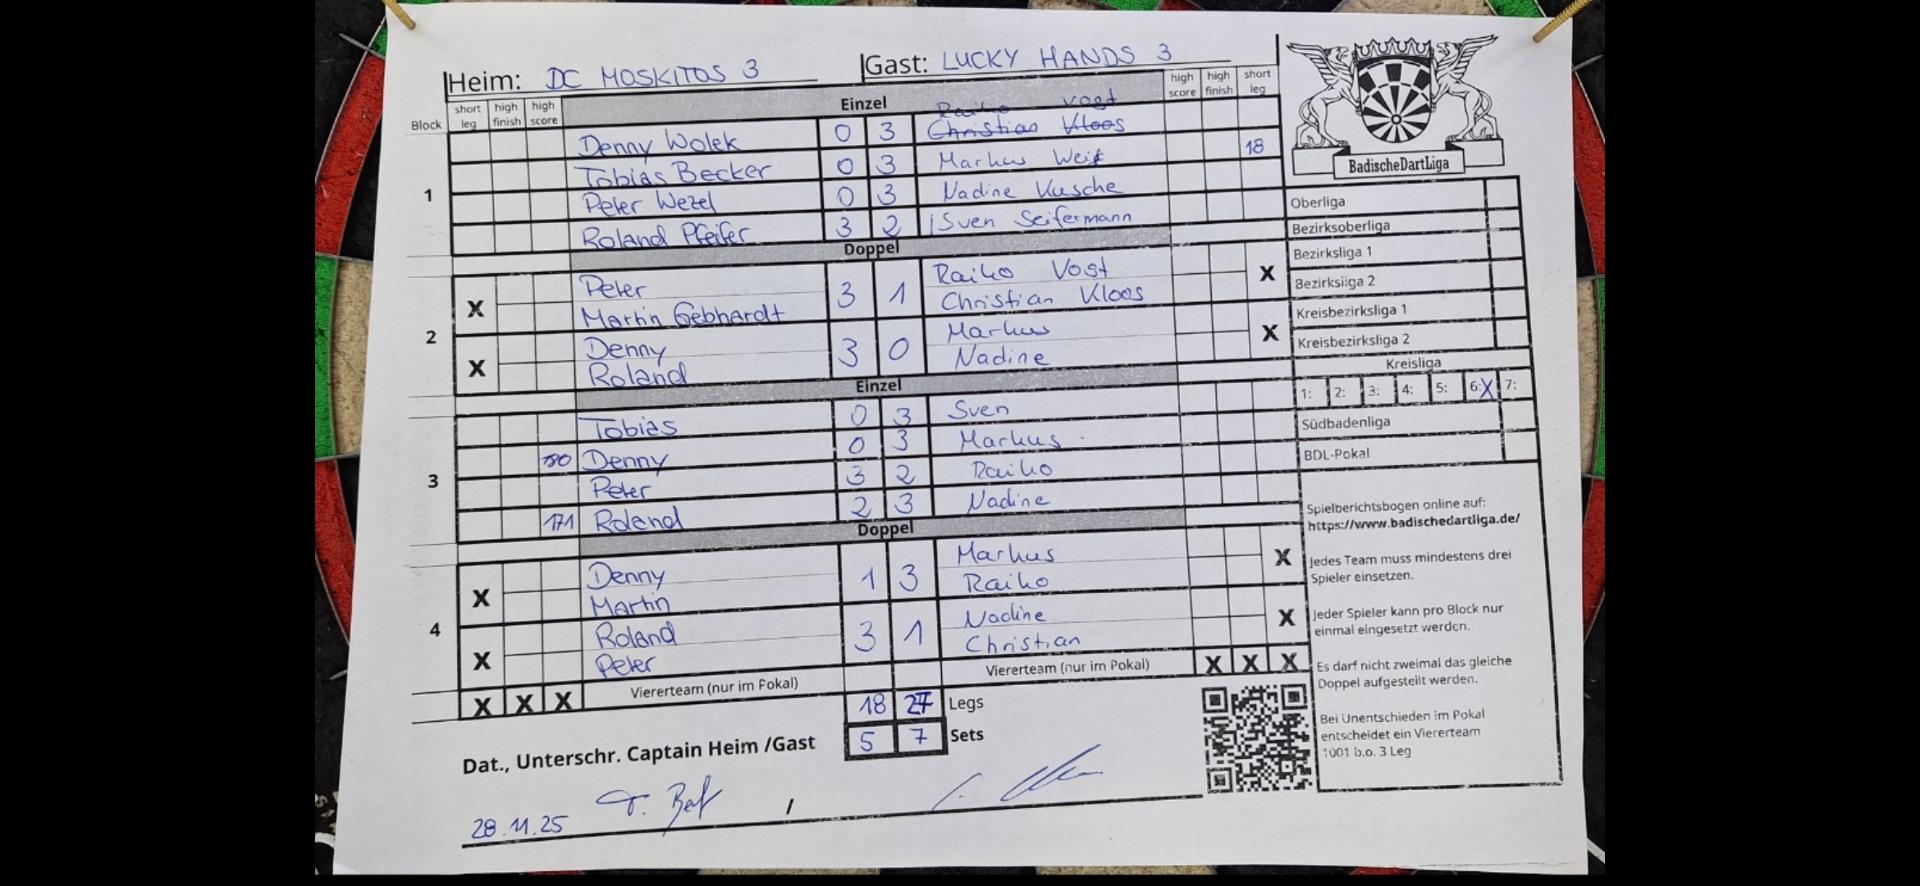 Heim: DC MOSKITOS 3 Gast: LUCKY HANDS 3
Block short leg high finish high score Einzel high score high finish short leg
Raiko Vogt
Denny Wolek 0 3 Christian Kloos
Tobias Becker 0 3 Markus Weiß 18
1
Peter Wezel 0 3 Nadine Kusche
Roland Pfeifer 3 2 Sven Seifermann
Doppel
2
X Peter 3 1 Raiko Vogt X
Martin Gebhardt Christian Kloos
X Denny 3 0 Markus X
Roland Nadine
Einzel
3
Tobias 0 3 Sven
180 Denny 0 3 Markus
Peter 3 2 Raiko
171 Roland 2 3 Nadine
Doppel
4
X Denny 1 3 Markus X
Martin Raiko
X Roland 3 1 Nadine X
Peter Christian
X X X Viererteam (nur im Pokal) Viererteam (nur im Pokal) X X X
18 27 Legs
5 7 Sets
Dat., Unterschr. Captain Heim /Gast
28.11.25 /
BadischeDartLiga
Oberliga
Bezirksoberliga
Bezirksliga 1
Bezirksliga 2
Kreisbezirksliga 1
Kreisbezirksliga 2
Kreisliga
1: 2: 3: 4: 5: 6: X 7:
Südbadenliga
BDL-Pokal
Spielberichtsbogen online auf:
https://www.badischedartliga.de/
Jedes Team muss mindestens drei
Spieler einsetzen.
Jeder Spieler kann pro Block nur
einmal eingesetzt werden.
Es darf nicht zweimal das gleiche
Doppel aufgestellt werden.
Bei Unentschieden im Pokal
entscheidet ein Viererteam
1001 b.o. 3 Leg